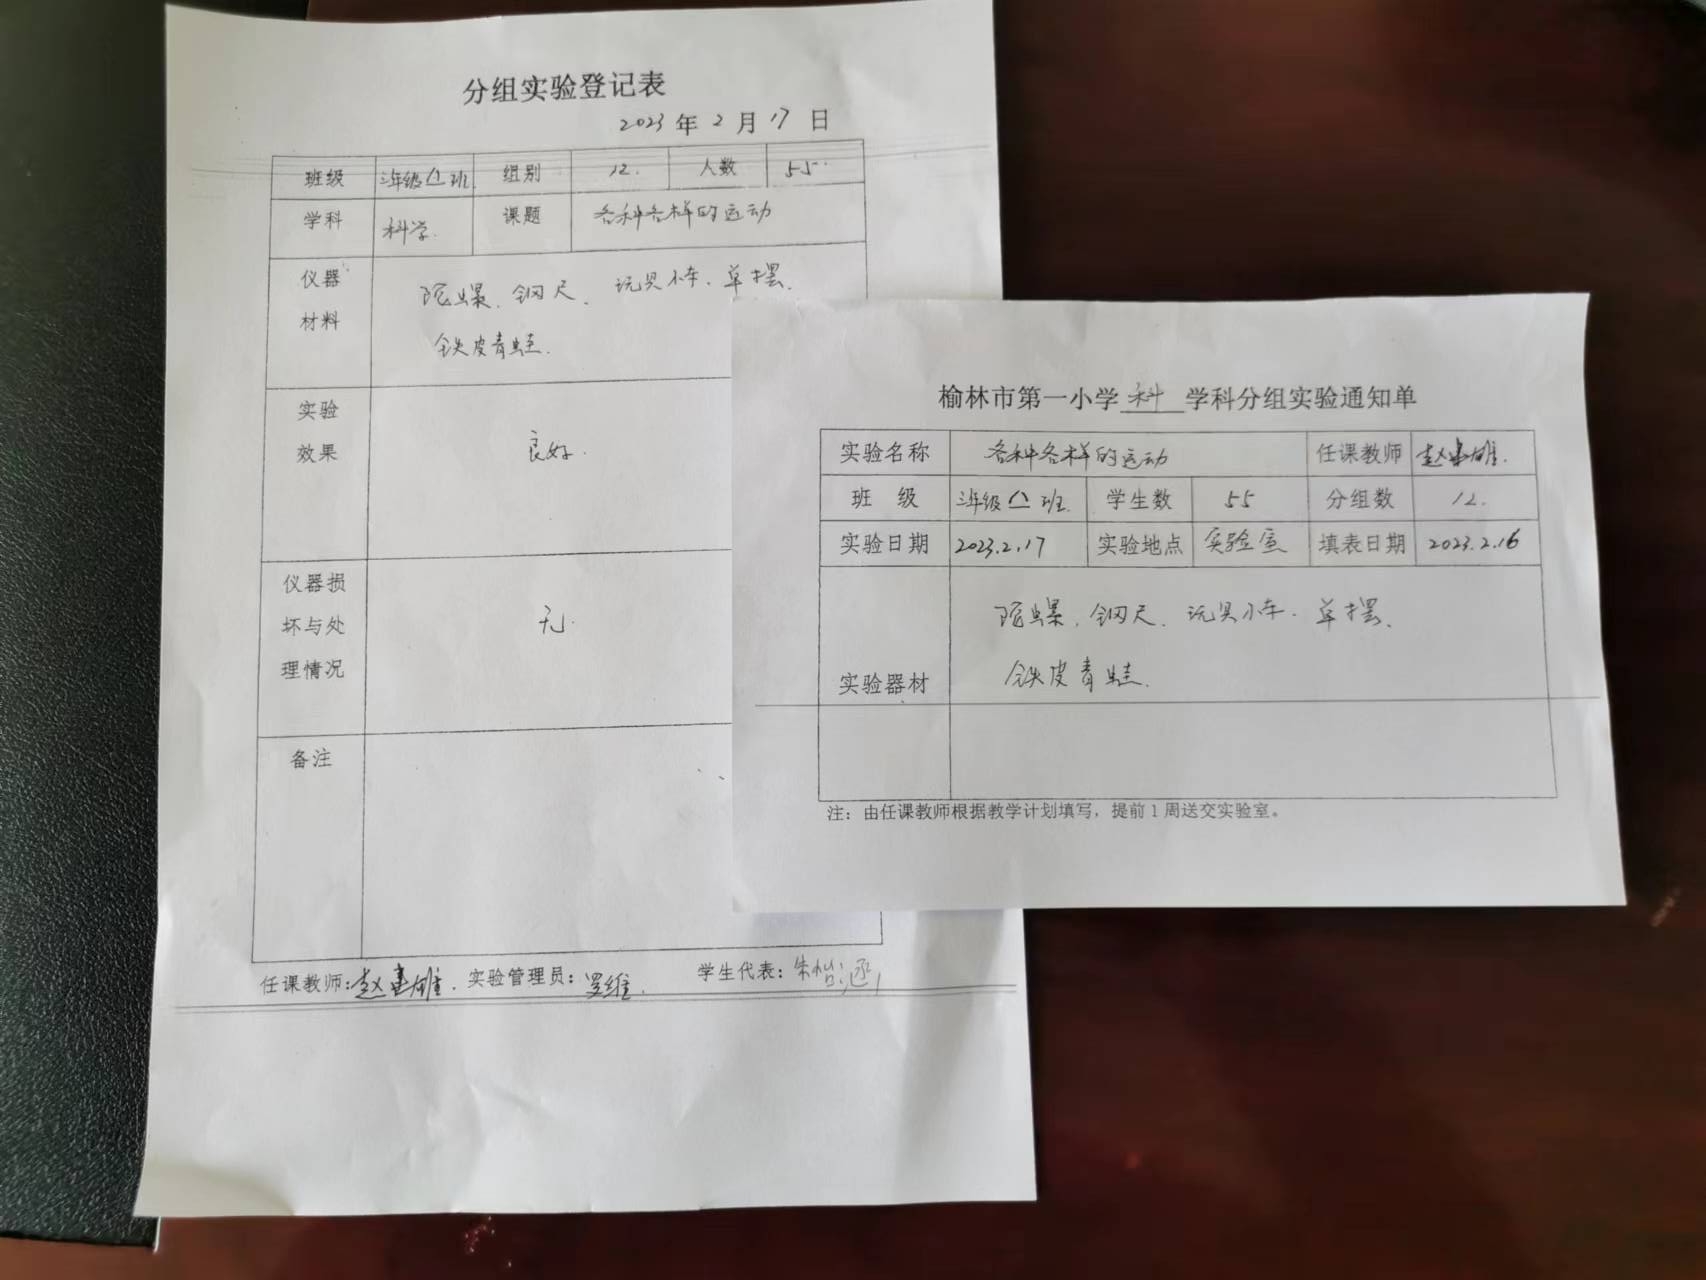 分组实验登记表
2023年2月17日
班级 三年级△班 组别 12. 人数 55.
学科 科学. 课题 各种各样的运动
仪器材料 陀螺、钢尺、玩具小车、单摆、
铁皮青蛙.
实验效果 良好.
仪器损坏与处理情况 无.
备注
任课教师:赵建雄. 实验管理员:罗维. 学生代表:朱怡涵
榆林市第一小学 科 学科分组实验通知单
实验名称 各种各样的运动 任课教师 赵建雄.
班 级 三年级△班. 学生数 55 分组数 12.
实验日期 2023.2.17 实验地点 实验室 填表日期 2023.2.16
实验器材 陀螺、钢尺、玩具小车、单摆、
铁皮青蛙.
注：由任课教师根据教学计划填写，提前1周送交实验室。